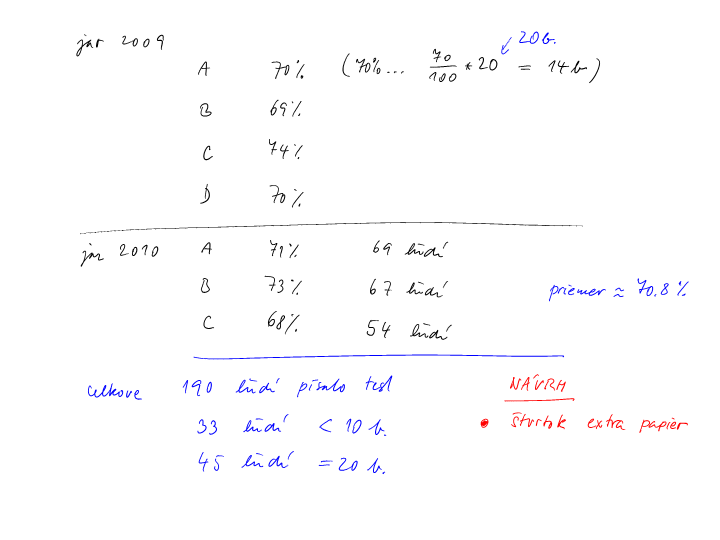 jar 2009
20 b.
A 70% (70%... 70/100 * 20 = 14 b)
B 69%
C 74%
D 70%
jar 2010 A 71% 69 ľudí
B 73% 67 ľudí
priemer ≈ 70.8%
C 68% 54 ľudí
celkove 190 ľudí písalo test
33 ľudí < 10 b.
45 ľudí = 20 b.
NÁVRH
• štvrtok extra papier